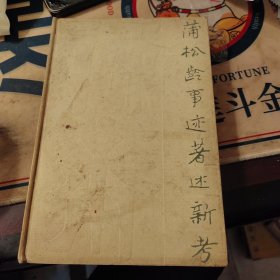 蒲松龄事迹著述新考
FORTUNE
斗金